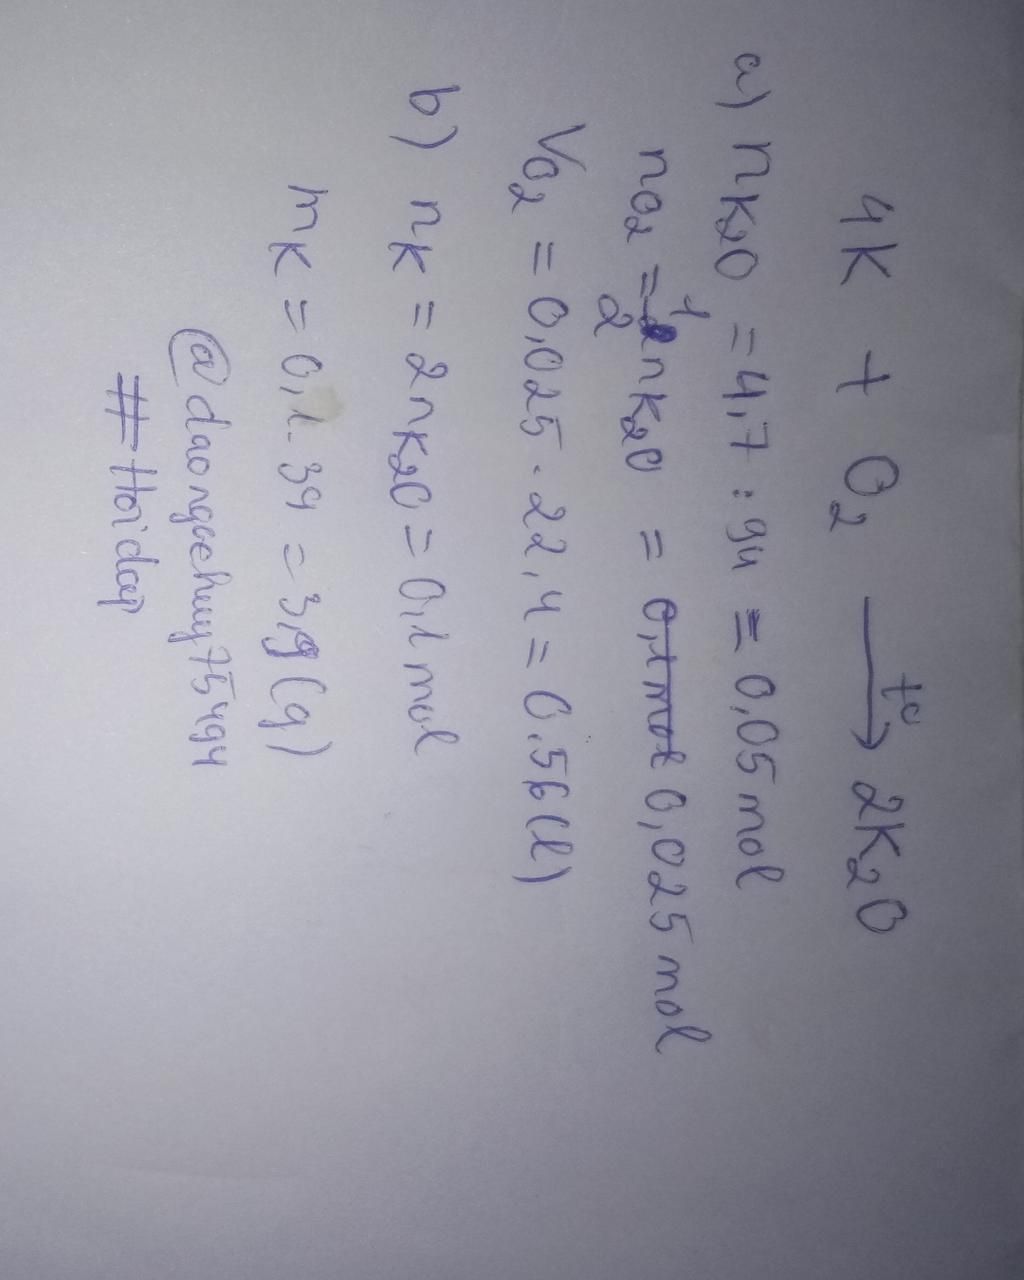 4K + O₂ —t°→ 2K₂O
a) nK₂O = 4,7 : 94 = 0,05 mol
nO₂ = 1/2 nK₂O = ~~0,1 mol~~ 0,025 mol
VO₂ = 0,025 . 22,4 = 0.56 (l)
b) nK = 2nK₂O = 0,1 mol
mK = 0,1. 39 = 3,9 (g)
@daongochuy75494
#Hoidap